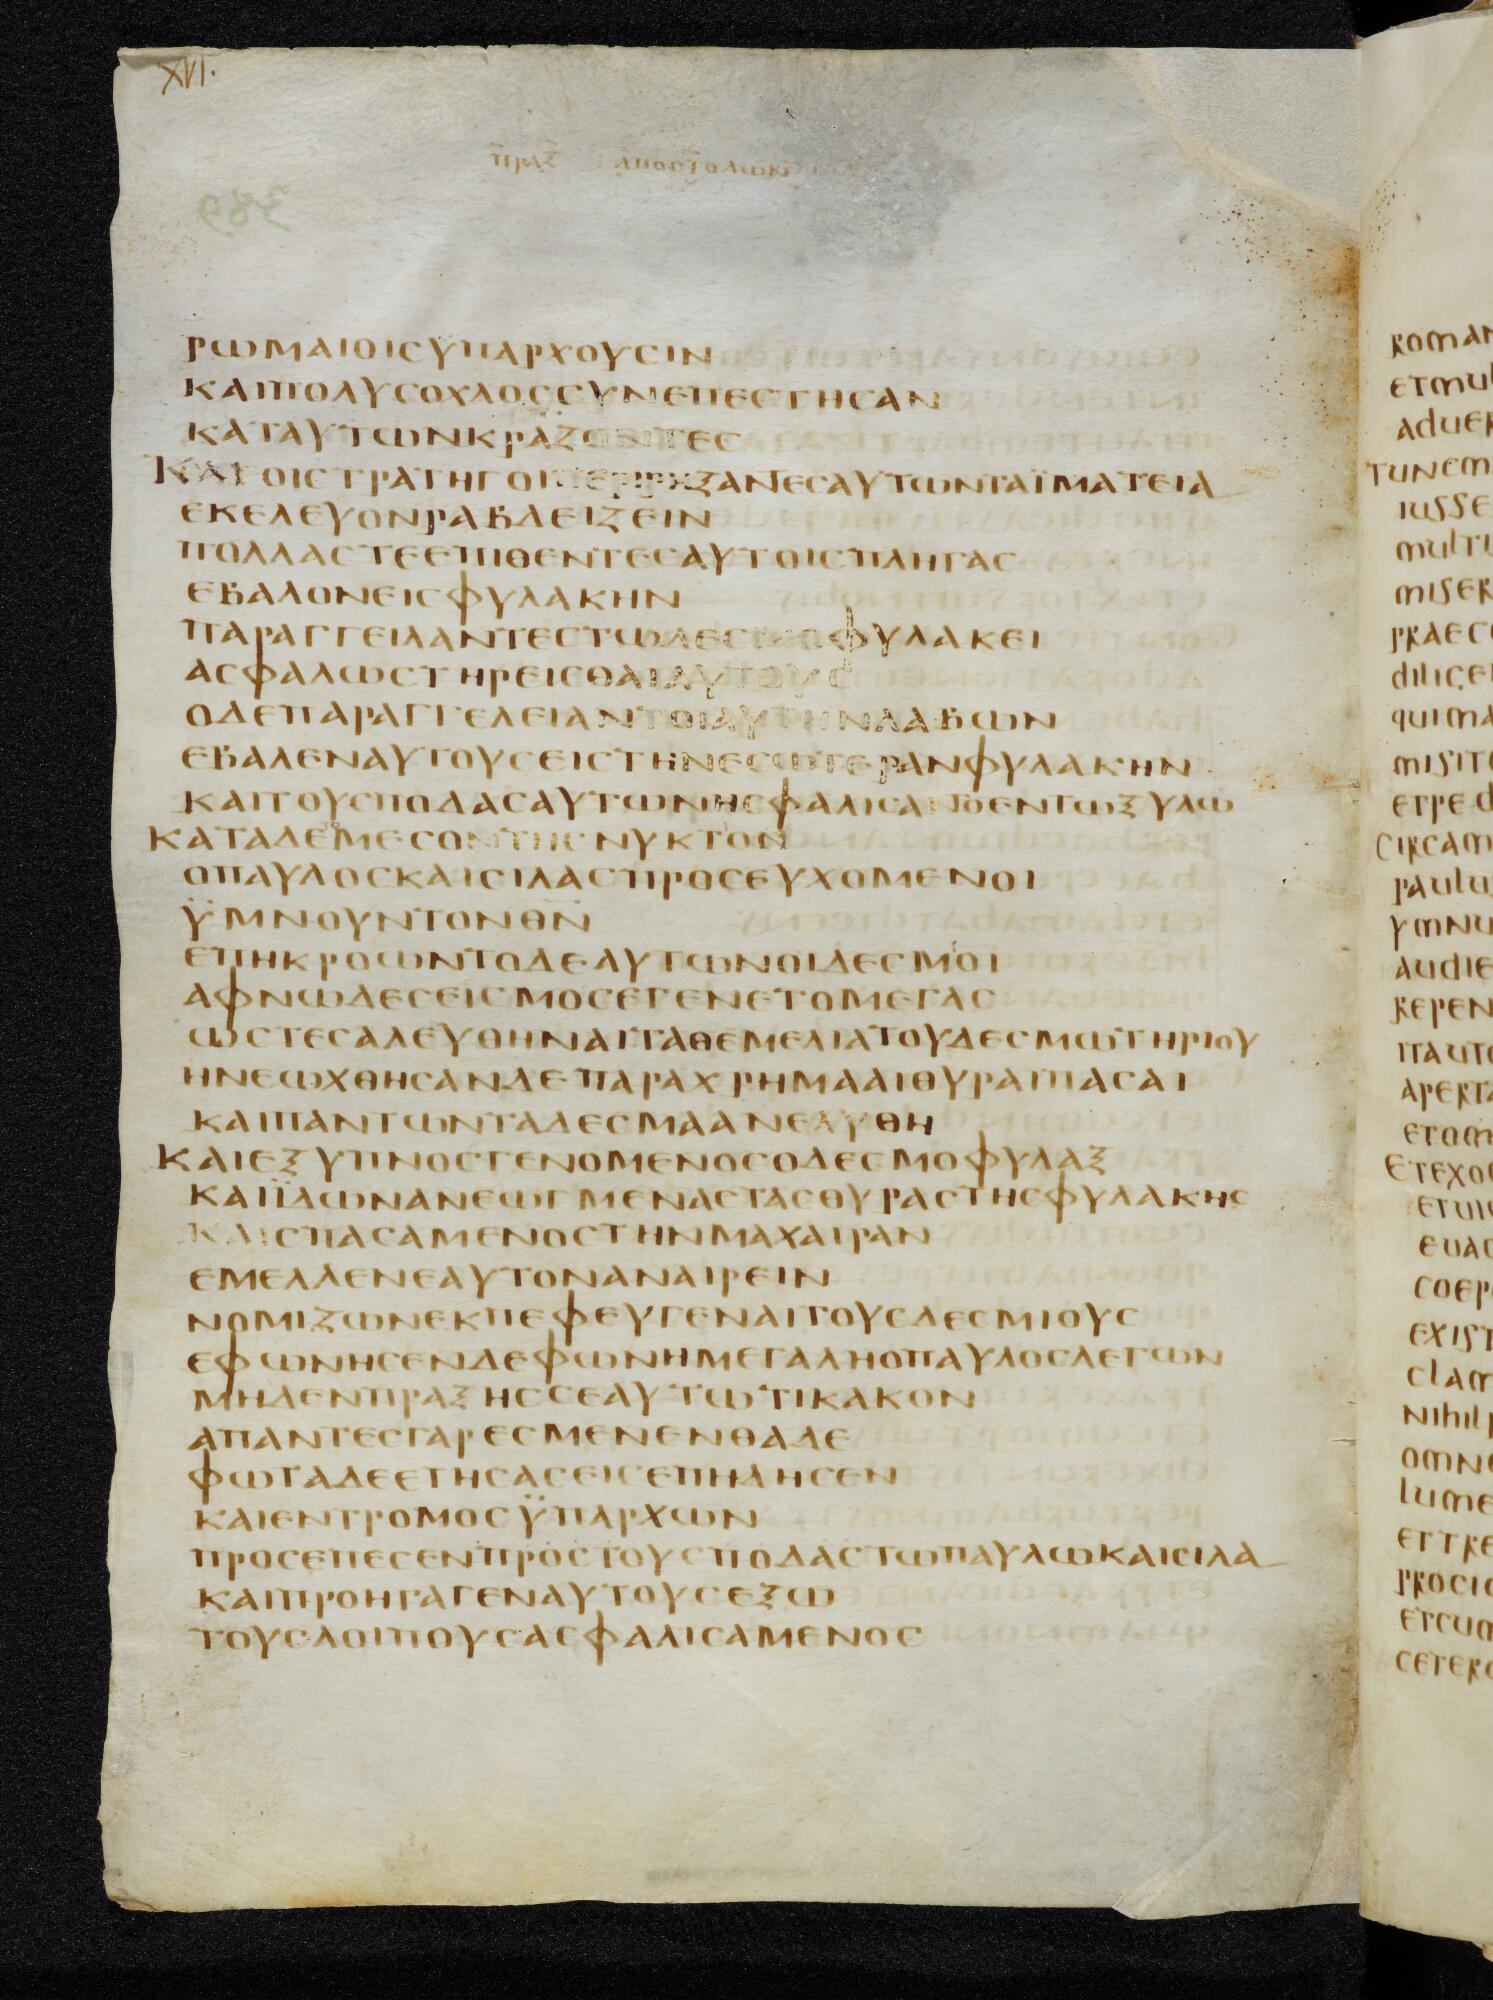 XVI·
πραξ αποστολων
389
ΡΩΜΑΙΟΙϹΥΠΑΡΧΟΥϹΙΝ
ΚΑΙΠΟΛΥϹΟΧΛΟϹϹΥΝΕΠΕϹΤΗϹΑΝ
ΚΑΤΑΥΤΩΝΚΡΑΖΟΝΤΕϹ
ΚΑΙΟΙϹΤΡΑΤΗΓΟΙΠΕΡΙΡΗΞΑΝΤΕϹΑΥΤΩΝΤΑΪΜΑΤΕΙΑ
ΕΚΕΛΕΥΟΝΡΑΒΔΕΙΖΕΙΝ
ΠΟΛΛΑϹΤΕΕΠΙΘΕΝΤΕϹΑΥΤΟΙϹΠΛΗΓΑϹ
ΕΒΑΛΟΝΕΙϹΦΥΛΑΚΗΝ
ΠΑΡΑΓΓΕΙΛΑΝΤΕϹΤΩΔΕϹΜΟΦΥΛΑΚΕΙ
ΑϹΦΑΛΩϹΤΗΡΕΙϹΘΑΙΑΥΤΟΥϹ
ΟΔΕΠΑΡΑΓΓΕΛΕΙΑΝΤΟΙΑΥΤΗΝΛΑΒΩΝ
ΕΒΑΛΕΝΑΥΤΟΥϹΕΙϹΤΗΝΕϹΩΤΕΡΑΝΦΥΛΑΚΗΝ
ΚΑΙΤΟΥϹΠΟΔΑϹΑΥΤΩΝΗϹΦΑΛΙϹΑΝΤΟΕΝΤΩΞΥΛΩ
ΚΑΤΑΔΕΜΕϹΟΝΤΗϹΝΥΚΤΟΝ
ΟΠΑΥΛΟϹΚΑΙϹΙΛΑϹΠΡΟϹΕΥΧΟΜΕΝΟΙ
ΫΜΝΟΥΝΤΟΝΘΝ̅
ΕΠΗΚΡΟΩΝΤΟΔΕΑΥΤΩΝΟΙΔΕϹΜΟΙ
ΑΦΝΩΔΕϹΕΙϹΜΟϹΕΓΕΝΕΤΟΜΕΓΑϹ
ΩϹΤΕϹΑΛΕΥΘΗΝΑΙΤΑΘΕΜΕΛΙΑΤΟΥΔΕϹΜΩΤΗΡΙΟΥ
ΗΝΕΩΧΘΗϹΑΝΔΕΠΑΡΑΧΡΗΜΑΑΙΘΥΡΑΙΠΑϹΑΙ
ΚΑΙΠΑΝΤΩΝΤΑΔΕϹΜΑΑΝΕΛΥΘΗ
ΚΑΙΕΞΥΠΝΟϹΓΕΝΟΜΕΝΟϹΟΔΕϹΜΟΦΥΛΑΞ
ΚΑΙΪΔΩΝΑΝΕΩΓΜΕΝΑϹΤΑϹΘΥΡΑϹΤΗϹΦΥΛΑΚΗϹ
ΚΑΙϹΠΑϹΑΜΕΝΟϹΤΗΝΜΑΧΑΙΡΑΝ
ΕΜΕΛΛΕΝΕΑΥΤΟΝΑΝΑΙΡΕΙΝ
ΝΟΜΙΖΩΝΕΚΠΕΦΕΥΓΕΝΑΙΤΟΥϹΔΕϹΜΙΟΥϹ
ΕΦΩΝΗϹΕΝΔΕΦΩΝΗΜΕΓΑΛΗΟΠΑΥΛΟϹΛΕΓΩΝ
ΜΗΔΕΝΠΡΑΞΗϹϹΕΑΥΤΩΤΙΚΑΚΟΝ
ΑΠΑΝΤΕϹΓΑΡΕϹΜΕΝΕΝΘΑΔΕ
ΦΩΤΑΔΕΕΤΗϹΑϹΕΙϹΕΠΗΔΗϹΕΝ
ΚΑΙΕΝΤΡΟΜΟϹΫΠΑΡΧΩΝ
ΠΡΟϹΕΠΕϹΕΝΠΡΟϹΤΟΥϹΠΟΔΑϹΤΩΠΑΥΛΩΚΑΙϹΙΛΑ
ΚΑΙΠΡΟΗΓΑΓΕΝΑΥΤΟΥϹΕΞΩ
ΤΟΥϹΛΟΙΠΟΥϹΑϹΦΑΛΙϹΑΜΕΝΟϹ
ROMAN
ETMUL
ADUER
TUNCM
IUSSE
MULTI
MISER
PRAEC
DILIGE
QUIMA
MISIT
ETPED
CIRCAM
PAULU
YMNU
AUDIE
REPEN
ITAUT
APERTA
ETOM
ETEXO
ETUI
EUAG
COEP
EXIST
CLAM
NIHIL
OMNE
LUME
ETTRE
PROCI
ETCUM
CETER